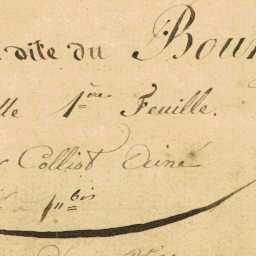 dite du Bour
lle 1ère Feuille.
Colliot Ainé
1" bis